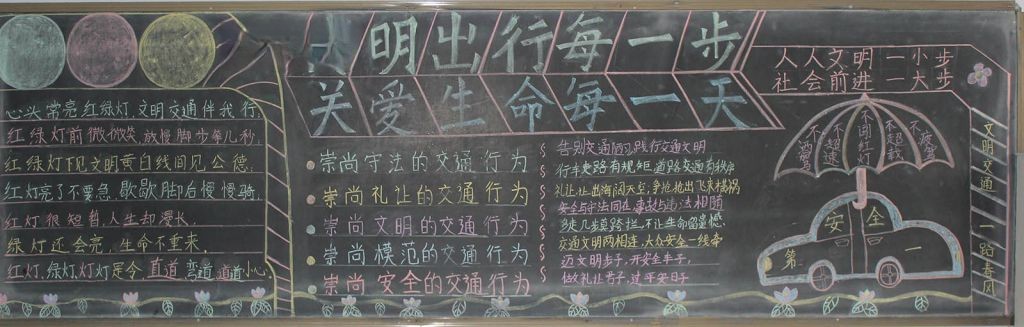 明出行每一步
关爱生命每一天
心头常亮红绿灯 文明交通伴我行
红绿灯前微微笑 放慢脚步等几秒
红绿灯下见文明 黄白线间见公德
红灯亮了不要急 歇歇脚后慢慢骑
红灯很短暂 人生却漫长
绿灯还会亮 生命不重来
红灯 绿灯 灯灯是令 直道 弯道 道道小心
崇尚守法的交通行为
崇尚礼让的交通行为
崇尚文明的交通行为
崇尚模范的交通行为
崇尚安全的交通行为
告别交通陋习 践行交通文明
行车走路有规矩 道路交通有秩序
礼让 让出海阔天空 争抢 抢出飞来横祸
安全与守法同在 事故与违法相随
多走几步路 不让生命留遗憾
交通文明两相连 大众安全一线牵
迈文明步子 开安全车子
做礼让君子 过平安日子
人人文明一小步
社会前进一大步
不酒驾
不超速
不闯红灯
不超载
不疲劳
安全第一
文明交通 一路春风